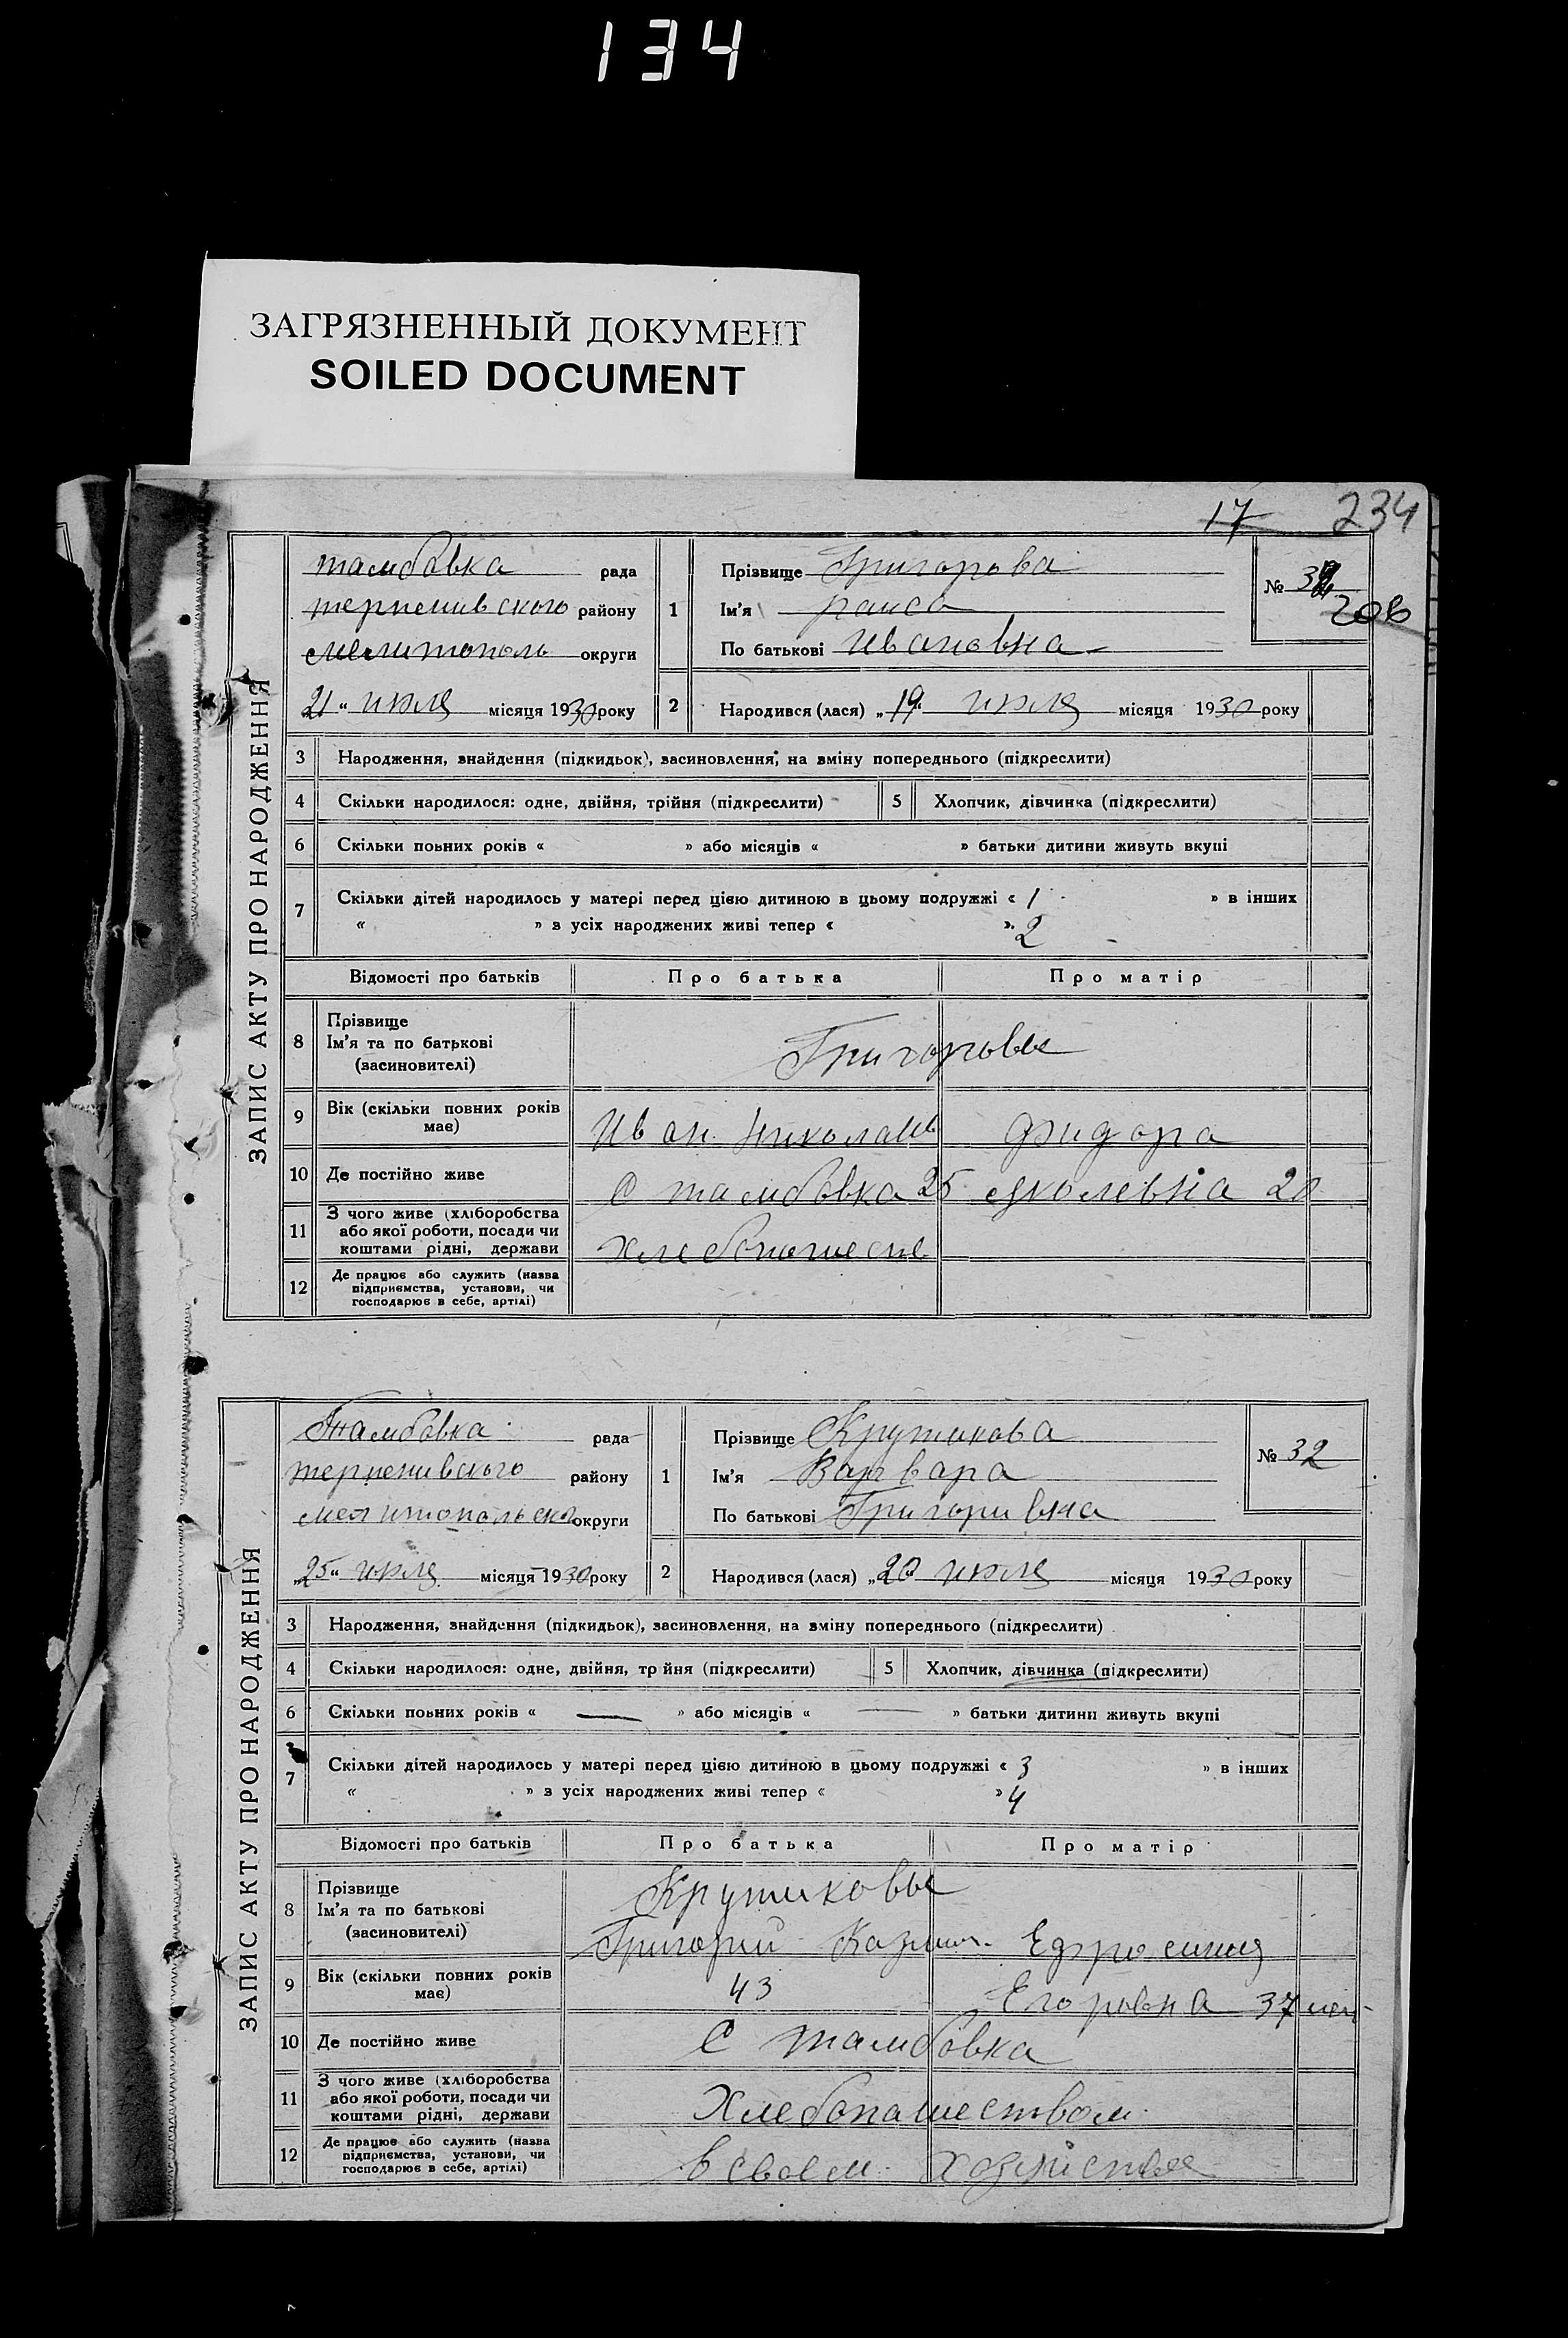 134
ЗАГРЯЗНЕННЫЙ ДОКУМЕНТ
SOILED DOCUMENT
17 234
ЗАПИС АКТУ ПРО НАРОДЖЕННЯ
тамбовка рада
терпенивского району
мелитополь округи
21 июля місяця 1930 року
1 Прізвище Григорова
Ім'я раиса
По батькові Ивановна
№
2 Народився (лася) „19“ июля місяця 1930 року
3 Народження, знайдення (підкидьок), засиновлення, на вміну попереднього (підкреслити)
4 Скільки народилося: одне, двійня, трійня (підкреслити) 5 Хлопчик, дівчинка (підкреслити)
6 Скільки повних років « » або місяців « » батьки дитини живуть вкупі
7 Скільки дітей народилось у матері перед цією дитиною в цьому подружжі « 1 » в інших
« » з усіх народжених живі тепер « » 2
Відомості про батьків Про батька Про матір
8 Прізвище
Ім'я та по батькові
(засиновителі)
Григоровы
9 Вік (скільки повних років
має)
Иван Николаив Фидора
10 Де постійно живе С тамбовка 25 яколевна 20
11 З чого живе (хліборобства
або якої роботи, посади чи
коштами рідні, держави
12 Де працює або служить (назва
підприємства, установи, чи
господарює в себе, артілі)
ЗАПИС АКТУ ПРО НАРОДЖЕННЯ
Тамбовка рада
терпенивского району
округи
„25“ июля місяця 1930 року
1 Прізвище Крутикова
Ім'я Варвара
По батькові Григоривна
№ 32
2 Народився (лася) „20“ июля місяця 1930 року
3 Народження, знайдення (підкидьок), засиновлення, на вміну попереднього (підкреслити)
4 Скільки народилося: одне, двійня, трійня (підкреслити) 5 Хлопчик, дівчинка (підкреслити)
6 Скільки повних років « — » або місяців « — » батьки дитини живуть вкупі
7 Скільки дітей народилось у матері перед цією дитиною в цьому подружжі « 3 » в інших
« » з усіх народжених живі тепер « » 4
Відомості про батьків Про батька Про матір
8 Прізвище
Ім'я та по батькові
(засиновителі)
Крутиковы
Григорий Ефросиния
9 Вік (скільки повних років
має)
43 Егоровна 37 лет
10 Де постійно живе С тамбовка
11 З чого живе (хліборобства
або якої роботи, посади чи
коштами рідні, держави
Хлебопашеством
12 Де працює або служить (назва
підприємства, установи, чи
господарює в себе, артілі)
в своем